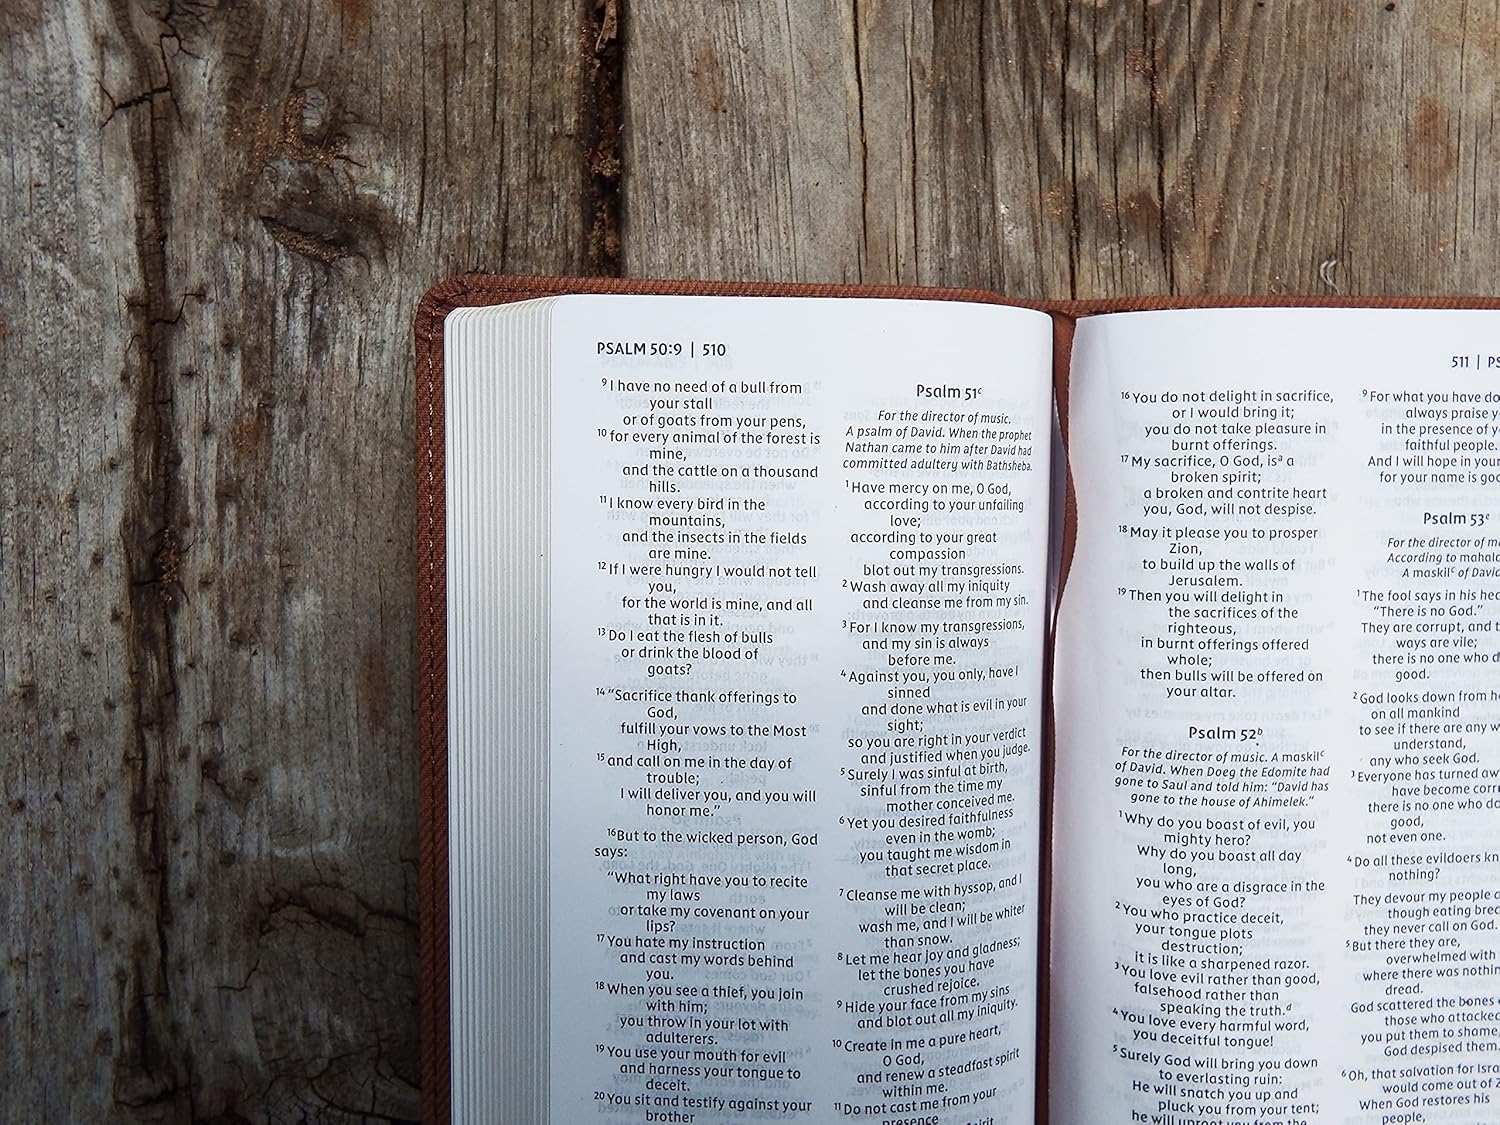 PSALM 50:9 | 510
⁹I have no need of a bull from
your stall
or of goats from your pens,
¹⁰for every animal of the forest is
mine,
and the cattle on a thousand
hills.
¹¹I know every bird in the
mountains,
and the insects in the fields
are mine.
¹²If I were hungry I would not tell
you,
for the world is mine, and all
that is in it.
¹³Do I eat the flesh of bulls
or drink the blood of
goats?
¹⁴“Sacrifice thank offerings to
God,
fulfill your vows to the Most
High,
¹⁵and call on me in the day of
trouble;
I will deliver you, and you will
honor me.”
¹⁶But to the wicked person, God
says:
“What right have you to recite
my laws
or take my covenant on your
lips?
¹⁷You hate my instruction
and cast my words behind
you.
¹⁸When you see a thief, you join
with him;
you throw in your lot with
adulterers.
¹⁹You use your mouth for evil
and harness your tongue to
deceit.
²⁰You sit and testify against your
brother
Psalm 51ᶜ
For the director of music.
A psalm of David. When the prophet
Nathan came to him after David had
committed adultery with Bathsheba.
¹Have mercy on me, O God,
according to your unfailing
love;
according to your great
compassion
blot out my transgressions.
²Wash away all my iniquity
and cleanse me from my sin.
³For I know my transgressions,
and my sin is always
before me.
⁴Against you, you only, have I
sinned
and done what is evil in your
sight;
so you are right in your verdict
and justified when you judge.
⁵Surely I was sinful at birth,
sinful from the time my
mother conceived me.
⁶Yet you desired faithfulness
even in the womb;
you taught me wisdom in
that secret place.
⁷Cleanse me with hyssop, and I
will be clean;
wash me, and I will be whiter
than snow.
⁸Let me hear joy and gladness;
let the bones you have
crushed rejoice.
⁹Hide your face from my sins
and blot out all my iniquity.
¹⁰Create in me a pure heart,
O God,
and renew a steadfast spirit
within me.
¹¹Do not cast me from your
presence
511 | PS
¹⁶You do not delight in sacrifice,
or I would bring it;
you do not take pleasure in
burnt offerings.
¹⁷My sacrifice, O God, isᵃ a
broken spirit;
a broken and contrite heart
you, God, will not despise.
¹⁸May it please you to prosper
Zion,
to build up the walls of
Jerusalem.
¹⁹Then you will delight in
the sacrifices of the
righteous,
in burnt offerings offered
whole;
then bulls will be offered on
your altar.
Psalm 52ᵇ
For the director of music. A maskilᶜ
of David. When Doeg the Edomite had
gone to Saul and told him: “David has
gone to the house of Ahimelek.”
¹Why do you boast of evil, you
mighty hero?
Why do you boast all day
long,
you who are a disgrace in the
eyes of God?
²You who practice deceit,
your tongue plots
destruction;
it is like a sharpened razor.
³You love evil rather than good,
falsehood rather than
speaking the truth.ᵈ
⁴You love every harmful word,
you deceitful tongue!
⁵Surely God will bring you down
to everlasting ruin:
He will snatch you up and
pluck you from your tent;
he will uproot you from the
⁹For what you have do
always praise y
in the presence of y
faithful people.
And I will hope in your
for your name is goo
Psalm 53ᵉ
For the director of mu
According to mahala
A maskilᶜ of David
¹The fool says in his hea
“There is no God.”
They are corrupt, and t
ways are vile;
there is no one who d
good.
²God looks down from he
on all mankind
to see if there are any w
understand,
any who seek God.
³Everyone has turned aw
have become corru
there is no one who do
good,
not even one.
⁴Do all these evildoers kn
nothing?
They devour my people a
though eating brea
they never call on God.
⁵But there they are,
overwhelmed with
where there was nothin
dread.
God scattered the bones
those who attacked
you put them to shame,
God despised them.
⁶Oh, that salvation for Isra
would come out of Z
When God restores his
people,